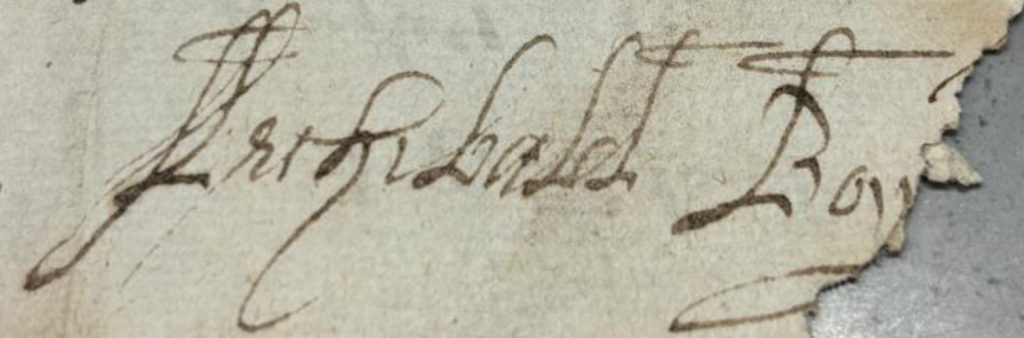 Archibald Boy